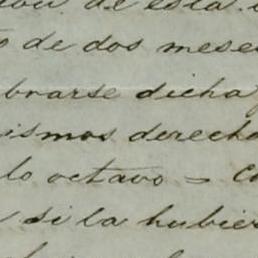 de esta
de dos mese
brarse dicha
ismos derecho
lo octavo =
si la hubier